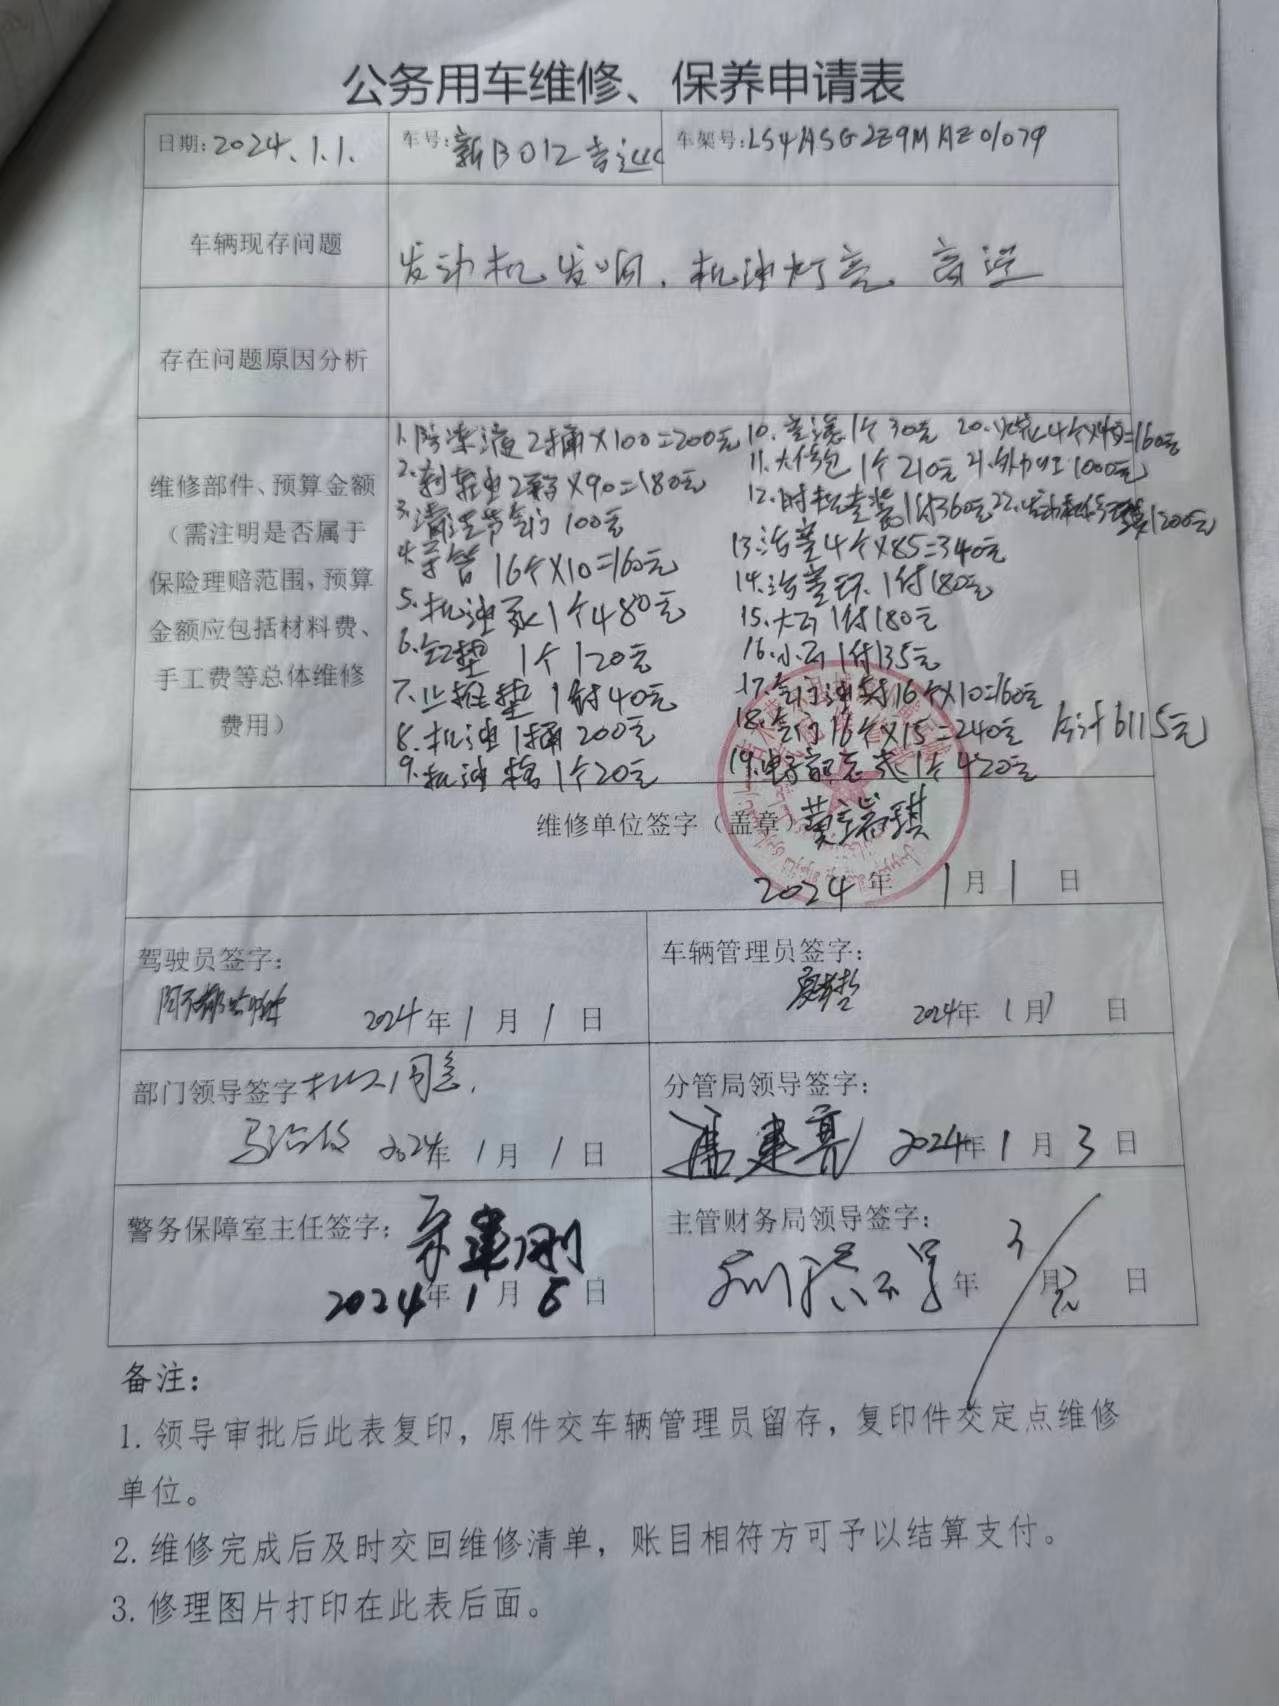 公务用车维修、保养申请表
日期:2024.1.1. 车号:新B012 车架号:LS4ASG2E9MAE01079
车辆现存问题 发动机发响.机油灯亮.
存在问题原因分析
维修部件、预算金额
（需注明是否属于
保险理赔范围，预算
金额应包括材料费、
手工费等总体维修
费用）
1.防冻液2桶×100=200元
2.刹车油2瓶×90=180元
3.清洗节气门 100元
4.导管 16个×10=160元
5.机油泵1个480元
6.缸垫 1个 120元
7.止推垫 1付40元
8.机油1桶200元
9.机油格1个20元
10.空滤1个30元
11.大修包 1个210元
12.时规套装1付360元
13.活塞4个×85=340元
14.活塞环1付180元
15.大瓦1付180元
16.小瓦1付135元
17.气门油封16个×10=160元
18.气门16个×15=240元
19.电子节气门 1个420元
20. 4个×40=160元
21.外加工1000元
22. 1200元
合计6115元
维修单位签字（盖章）
2024年1月1日
驾驶员签字:
2024年1月1日
车辆管理员签字:
2024年1月1日
部门领导签字 同意.
2024年1月1日
分管局领导签字:
2024年1月3日
警务保障室主任签字:
2024年1月6日
主管财务局领导签字:
年 月 日
备注:
1.领导审批后此表复印，原件交车辆管理员留存，复印件交定点维修
单位。
2.维修完成后及时交回维修清单，账目相符方可予以结算支付。
3.修理图片打印在此表后面。